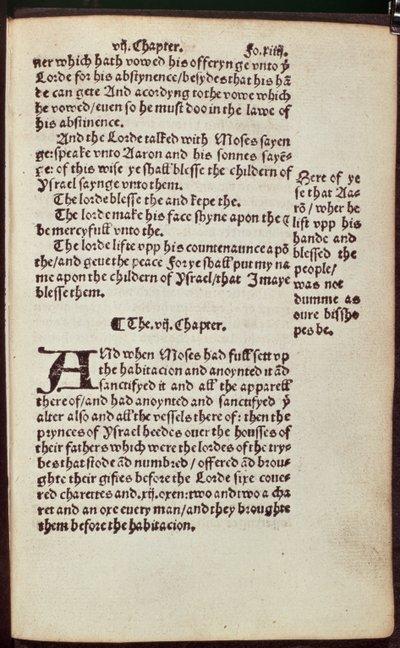 vij. Chapter. Fo. xiiij.
ner which hath vowed his offcrynge vnto ẏ
Lorde for his abstynence/besydes that his hā
de can gete And acordyng to the vowe which
he vowed/even so he must doo in the lawe of
his abstinence.
And the Lorde talked with Moses sayen
ge: speake vnto Aaron and his sonnes sayē-
ge: of this wise ye shall blesse the childern of
Ysrael saynge vnto them.
The lorde blesse the and kepe the.
The lorde make his face shyne apon the &
be mercyfull vnto the.
The lorde lifte vpp his countenaunce apō
the/and geue the peace For ye shall put my na
me apon the childern of Ysrael/that I maye
blesse them.
Here of ye
se that Aa-
rō/wher he
lift vpp his
hande and
blessed the
people/
was not
dumme as
oure bissho
pes be.
¶ The. vij. Chapter.
ANd when Moses had full sett vp
the habitacion and anoynted it ād
sanctifyed it and all the apparell
thereof/and had anoynted and sanctifyed ẏ
alter also and all the vessels there of: then the
prynces of Ysrael heedes ouer the housses of
their fathers which were the lordes of the try-
bes that stode ād numbred/offered ād brou-
ghte their giftes before the Lorde sixe coue-
red charettes and. xij. oxen: two and two a cha
ret and an oxe euery man/and they broughte
them before the habitacion.